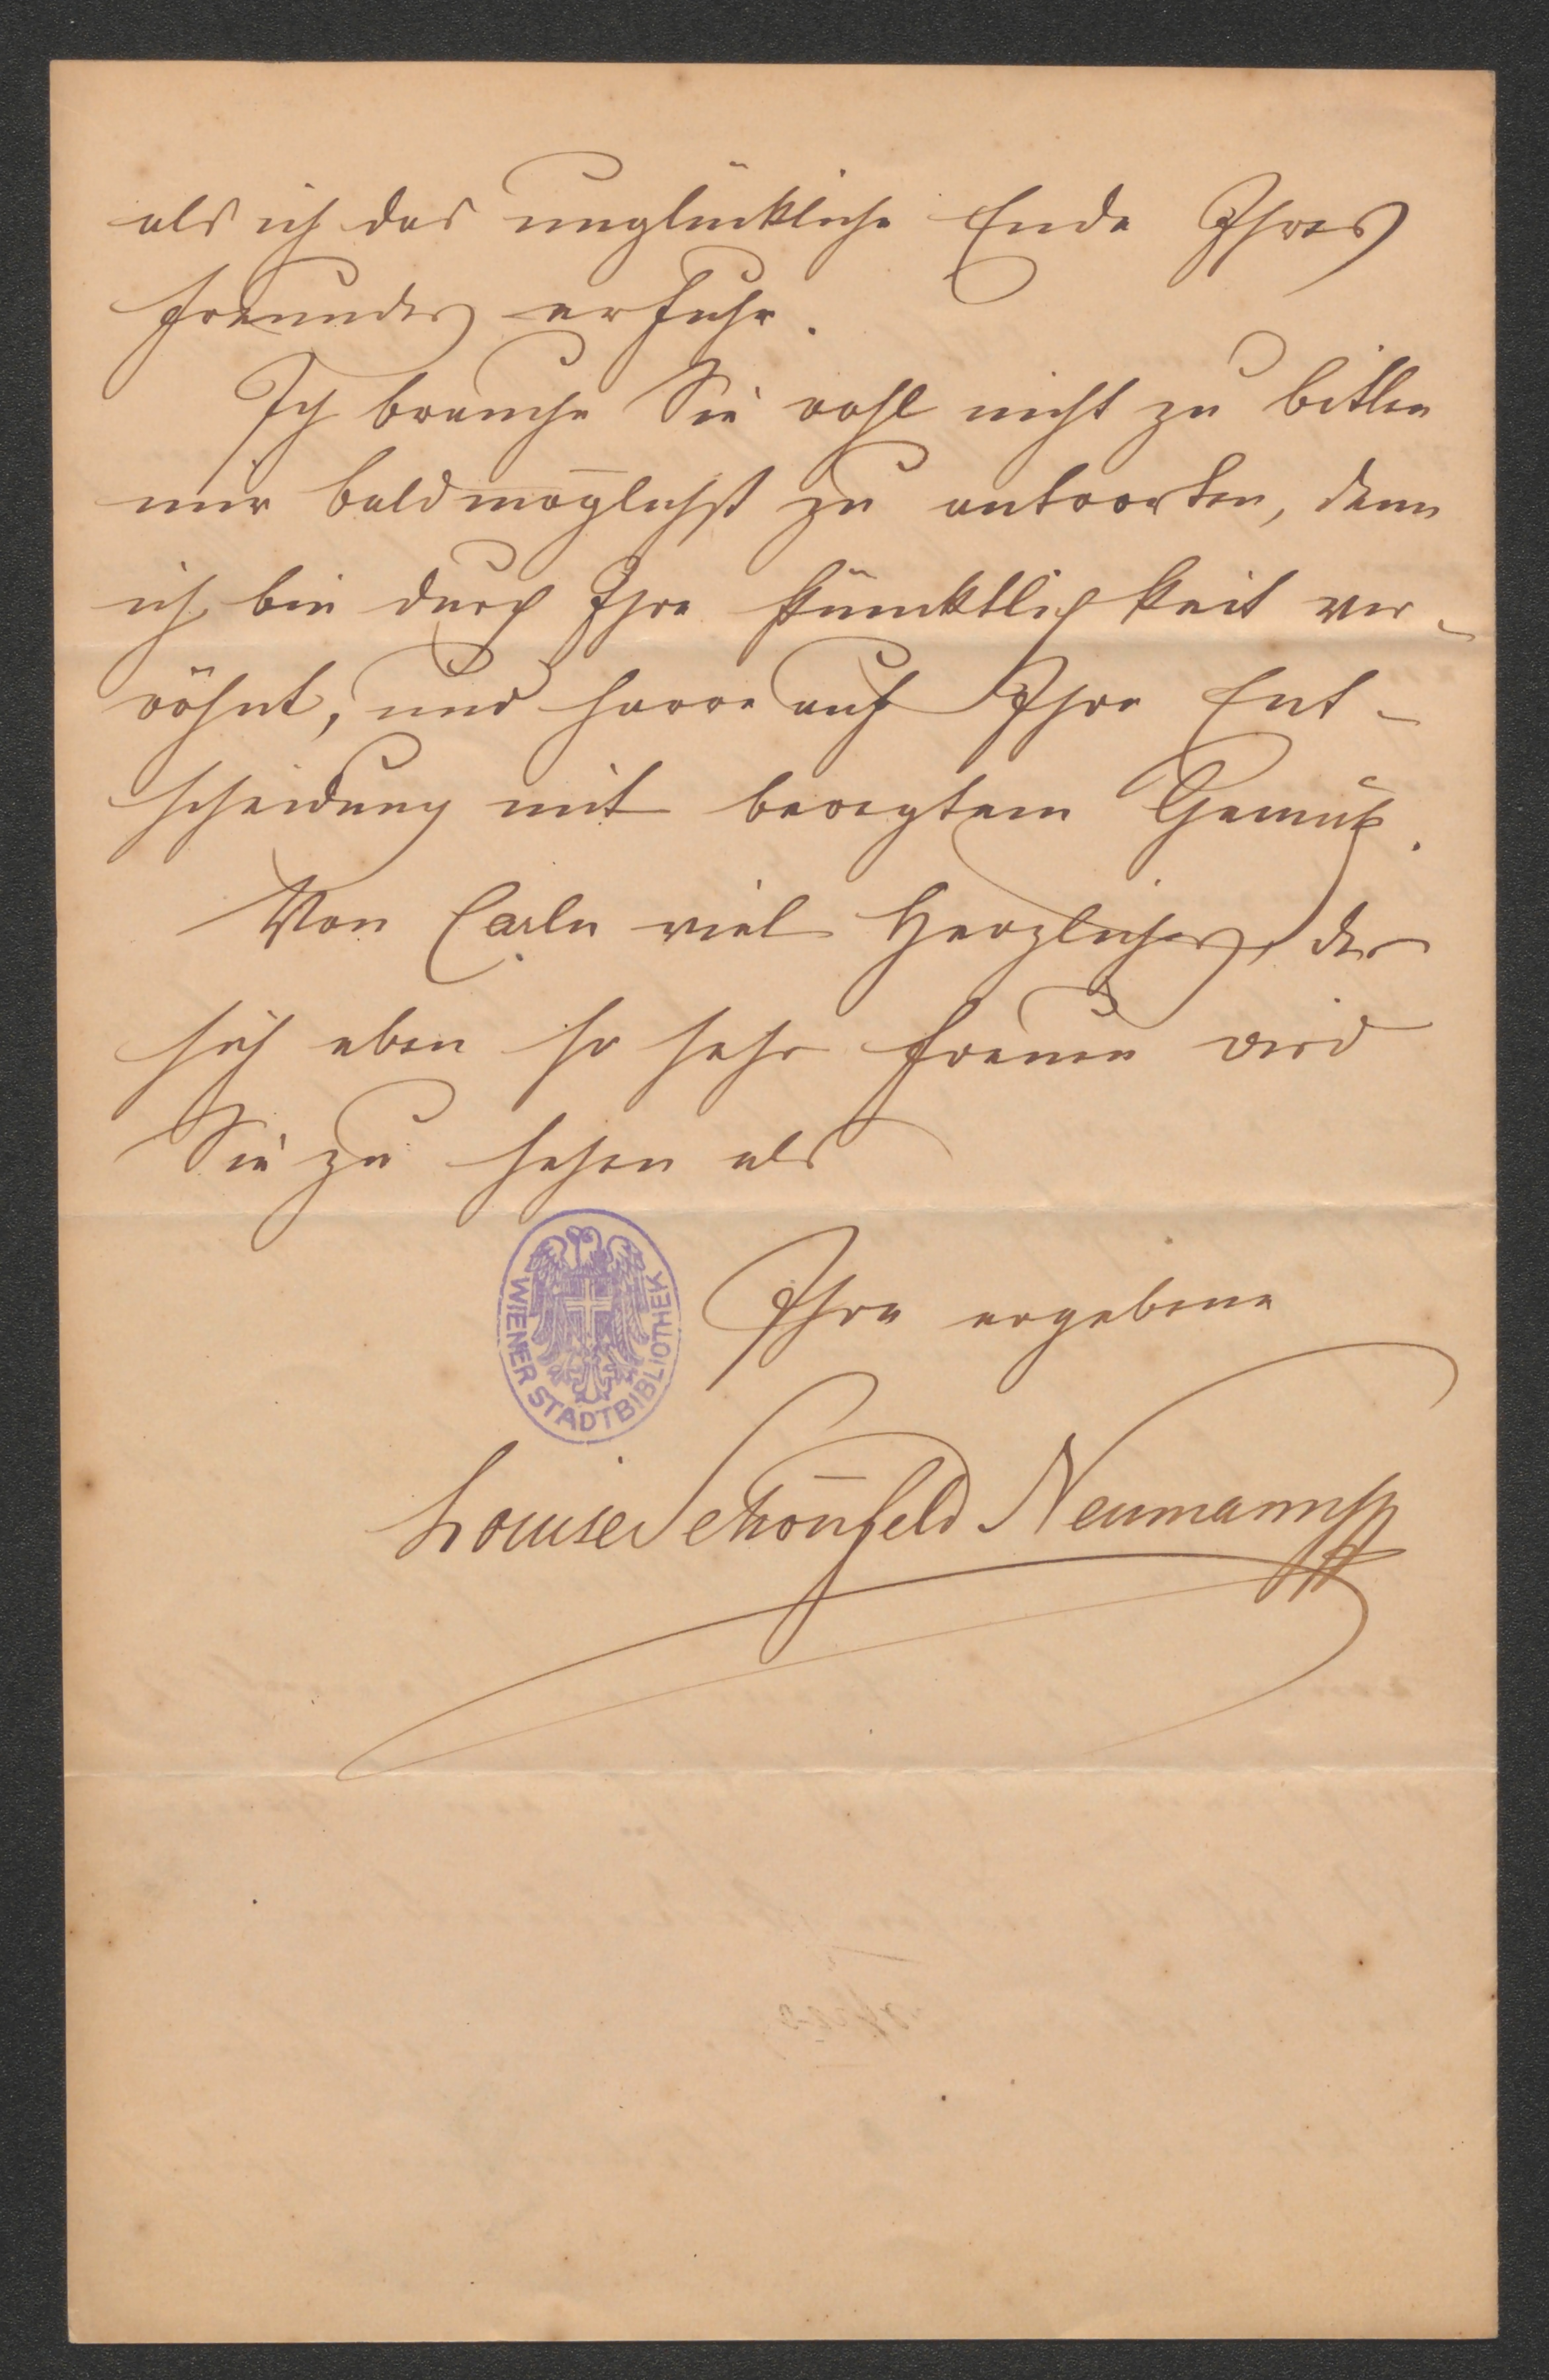 als ich das unglückliche Ende Ihres
Freundes erfuhr.
Ich brauche Sie wohl nicht zu bitten
mir baldmöglichst zu antworten, denn
ich bin durch Ihre Pünktlichkeit ver-
wöhnt, und harre auf Ihre Ent-
scheidung mit bewegtem Gemüth.
Von Carln viel Herzliches, der
sich eben so sehr freuen wird
Sie zu sehen als
Ihre ergebene
Louise Schönfeld Neumann
WIENER STADTBIBLIOTHEK